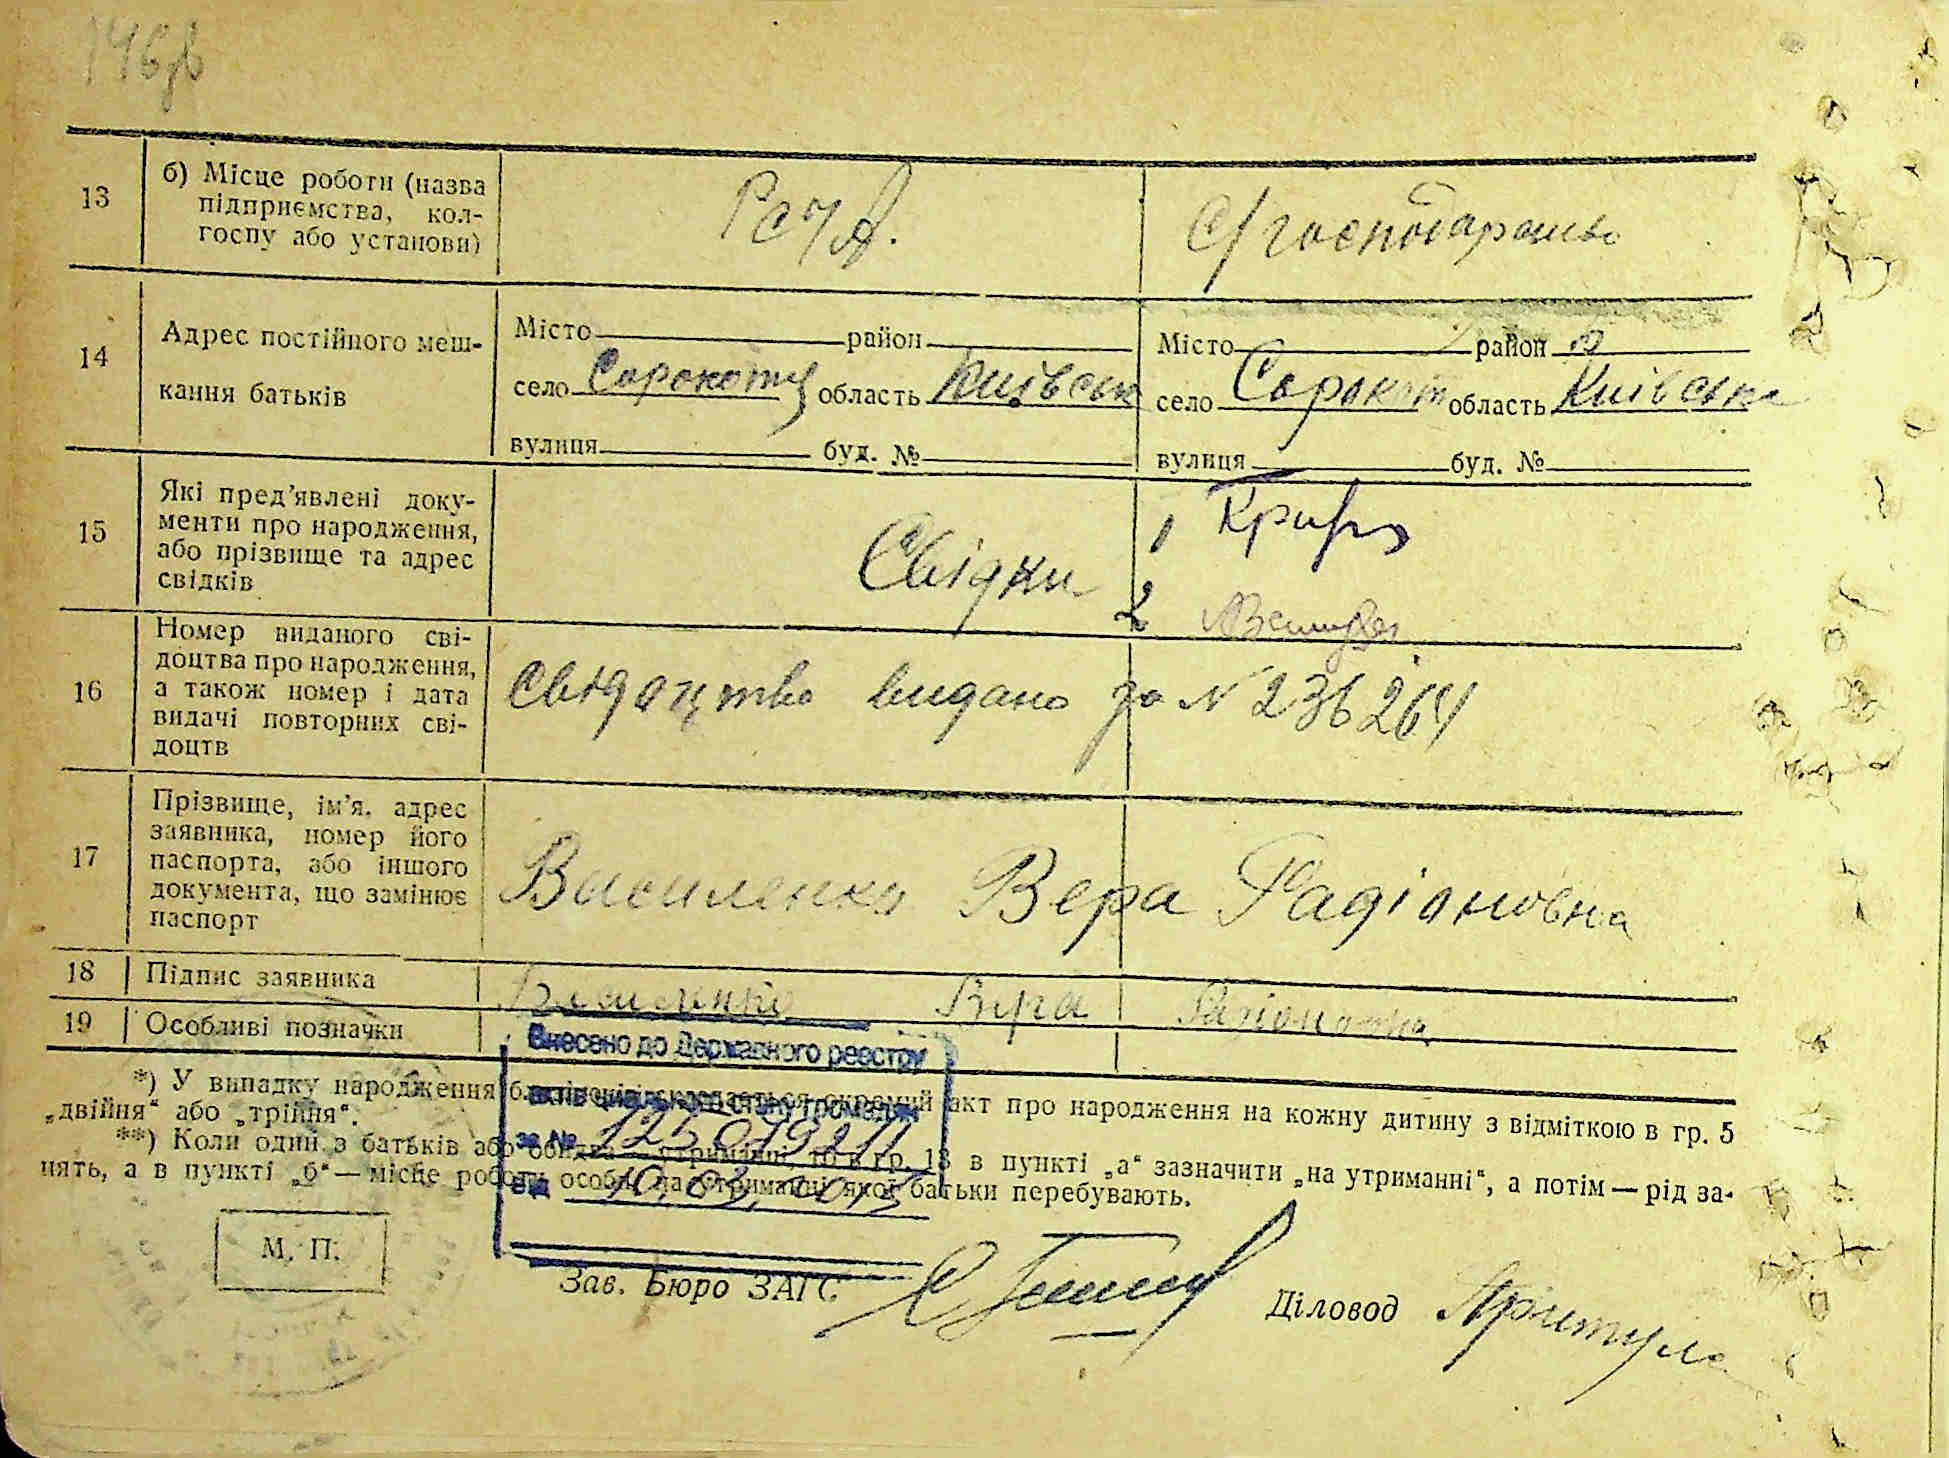 13 б) Місце роботи (назва
підприємства, кол-
госпу або установи)
РСЧА. С/господарстві
14 Адрес постійного меш-
кання батьків
Місто район Місто район
село Сорокотяг область Київськ село Сорокотяг область Київська
вулиця буд. № вулиця буд. №
15 Які пред'явлені доку-
менти про народження,
або прізвище та адрес
свідків
Свідки 1
2
16 Номер виданого сві-
доцтва про народження,
а також номер і дата
видачі повторних сві-
доцтв
Свідоцтво видано за N 236264
17 Прізвище, ім'я, адрес
заявника, номер його
паспорта, або іншого
документа, що замінює
паспорт
Василенко Вера Радіоновна
18 Підпис заявника Василенко Вера Радіоновна
19 Особливі позначки
Внесено до Державного реєстру
актів цивільного стану громадян
за № 125079211
від 10.03.
*) У випадку народження близнюків складається окремий акт про народження на кожну дитину з відміткою в гр. 5
„двійня“ або „трійня“.
**) Коли один з батьків або обидва на утриманні, то в гр. 13 в пункті „а“ зазначити „на утриманні“, а потім — рід за-
нять, а в пункті „б“ — місце роботи особи, на утриманні якої батьки перебувають.
М. П.
Зав. Бюро ЗАГС Діловод Притула